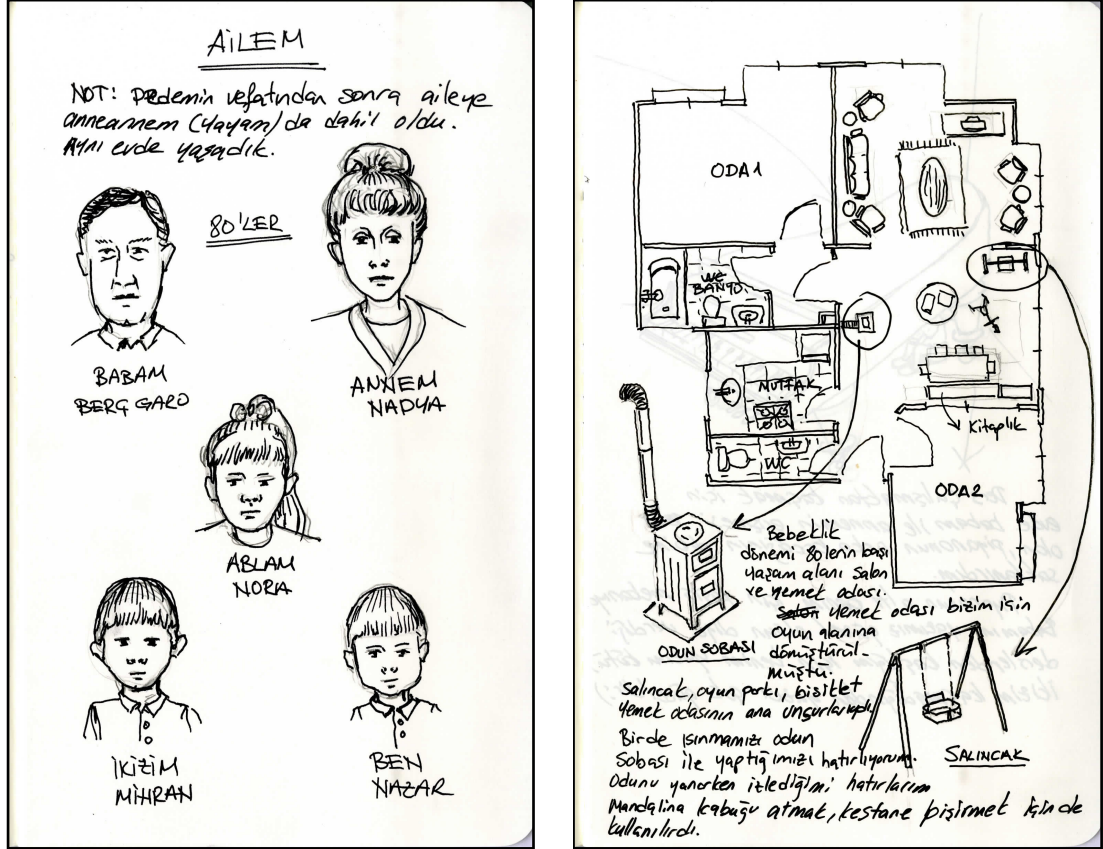 AİLEM
NOT: Dedemin vefatından sonra aileye
anneannem (Yayam) da dahil oldu.
Aynı evde yaşadık.
80'LER
BABAM
BERÇ GARO
ANNEM
NADYA
ABLAM
NORA
İKİZİM
MİHRAN
BEN
NAZAR
ODA1
WC
BANYO
MUTFAK
WC
Kitaplık
ODA2
Bebeklik
dönemi 80lerin başı
yaşam alanı salon
ve yemek odası.
Salon yemek odası bizim için
oyun alanına
dönüştürül-
müştü.
ODUN SOBASI
Salıncak, oyun parkı, bisiklet
yemek odasının ana unsurlarıydı.
Birde ısınmamızı odun
Sobası ile yaptığımızı hatırlıyorum.
Odunu yanarken izlediğimi hatırlarım
Mandalina kabuğu atmak, kestane pişirmek için de
kullanılırdı.
SALINCAK